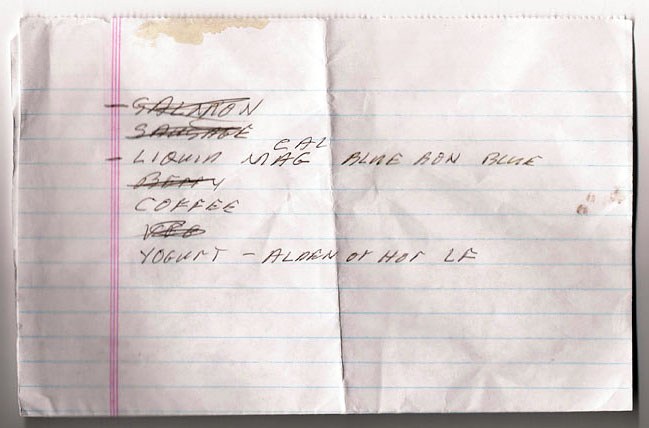 - SALMON
SAUSAGE
CAL
- LIQUID MAG BLUE BON BLUE
BERRY
COFFEE
YOGURT - ALDEN OR HOF LF